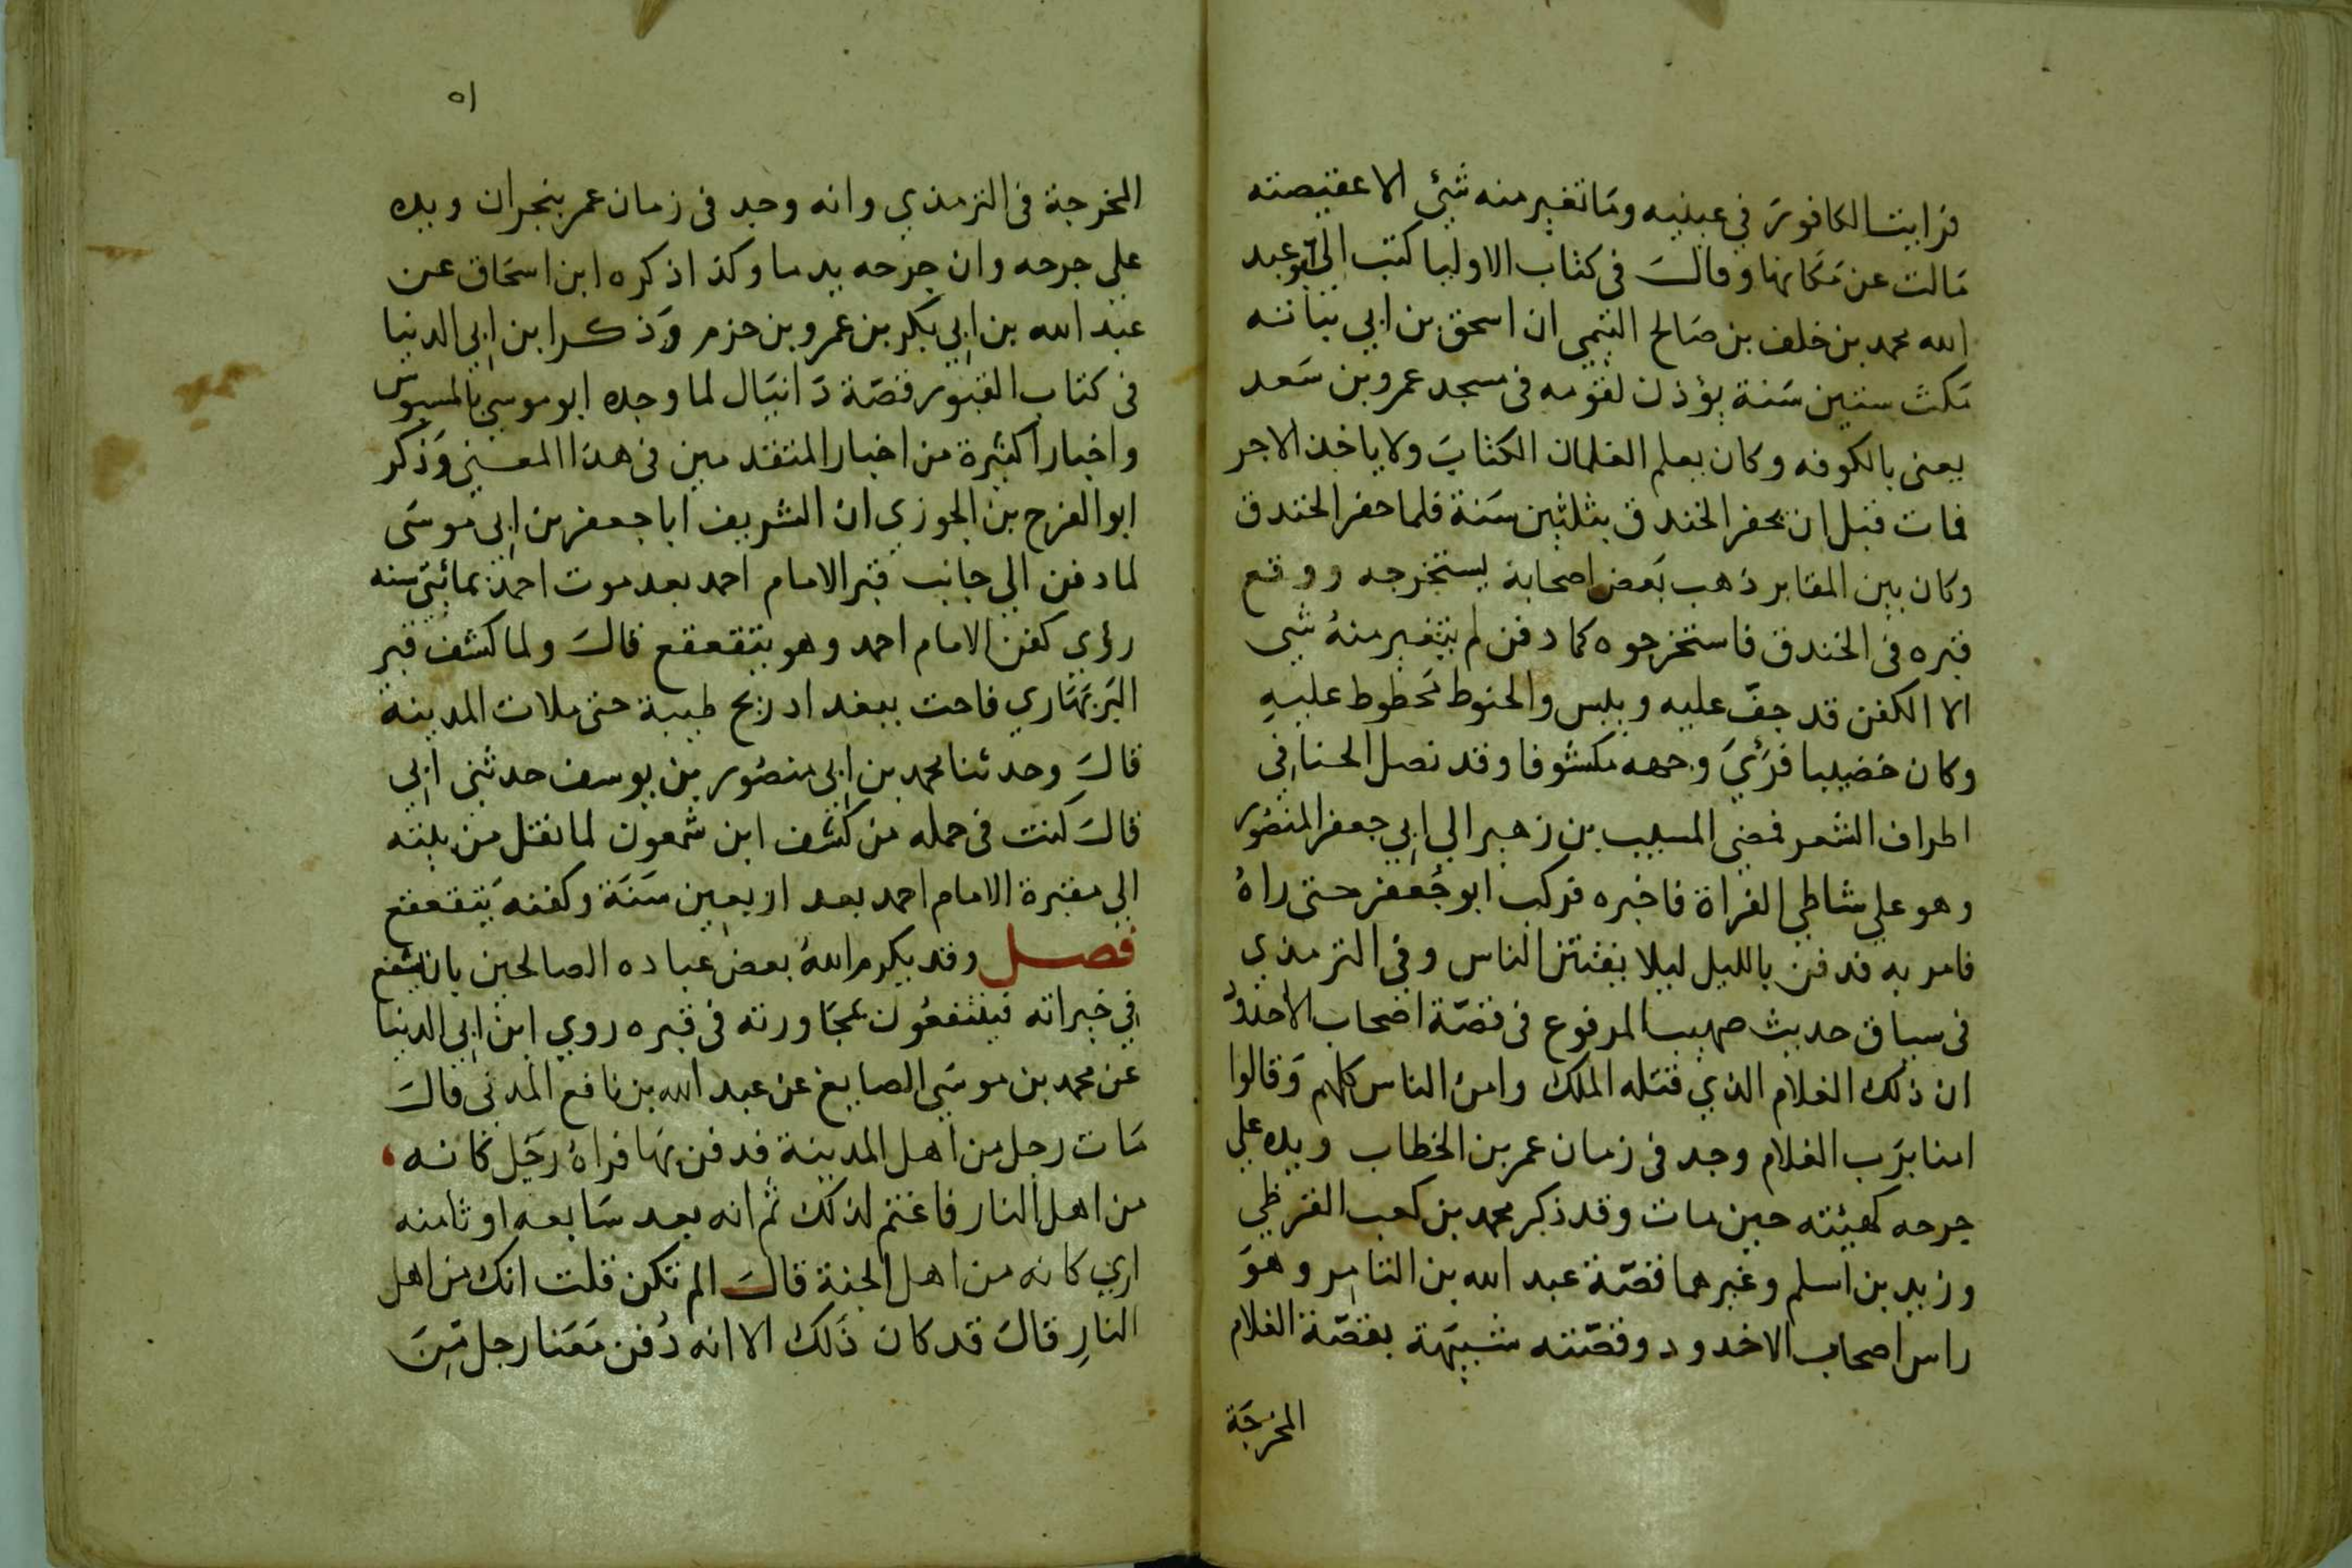 فرايت الكافور في عينيه وما تغير منه شئ الا عقيصته
مالت عن مكانها وقال فى كتاب الاوليا كتب الي ابو عبد
الله محمد بن خلف بن صالح التيمى ان اسحق بن ابي نباته
مكث ستين سنة يؤذن لقومه فى مسجد عمرو بن سعد
يعنى بالكوفه وكان يعلم الغلمان الكتاب ولا ياخذ الاجر
فمات قبل ان يحفر الخندق بثلثين سنة فلما حفر الخندق
وكان بين المقابر ذهب بعض اصحابة يستخرجه ووقع
قبره فى الخندق فاستخرجوه كما دفن لم يتغير منه شي
الا الكفن قد جف عليه ويبس والحنوط محطوط عليه
وكان خضيبا فرئي وجهه مكشوفا وقد نصل الحنا في
اطراف الشعر فمضي المسيب بن زهير الي ابي جعفر المنصور
وهو علي شاطي الفراة فاخبره فركب ابو جعفر حتى راه
فامر به فدفن بالليل ليلا يفتتن الناس وفي الترمذي
فى سياق حديث صهيب المرفوع فى قصة اصحاب الاخدود
ان ذلك الغلام الذي قتله الملك وامن الناس كلهم وقالوا
امنا برب الغلام وجد فى زمان عمر بن الخطاب ويده علي
جرحه كهيئته حين مات وقد ذكر محمد بن كعب القرظي
وزيد بن اسلم وغيرهما قصة عبد الله بن الثامر وهو
راس اصحاب الاخدود وقصته شبيهة بقصة الغلام
المخرجة
٥١
المخرجة فى الترمذي وانه وجد فى زمان عمر بنجران ويده
علي جرحه وان جرحه يدما وكذا ذكره ابن اسحاق عن
عبد الله بن ابي بكر بن عمرو بن حزم وذكر ابن ابي الدنيا
فى كتاب القبور قصة دانيال لما وجده ابو موسي بالسوس
واخبارا كثيرة من اخبار المتقدمين فى هذا المعني وذكر
ابو الفرج بن الجوزي ان الشريف ابا جعفر بن ابي موسى
لما دفن الي جانب قبر الامام احمد بعد موت احمد بمائتي سنه
رؤي كفن الامام احمد وهو يتقعقع قال ولما كشف قبر
البربهاري فاحت ببغداد ريح طيبة حتى ملات المدينة
قال وحدثنا محمد بن ابي منصور بن يوسف حدثني ابي
قال كنت فى جمله من كشف ابن شمعون لما نقل من بيته
الي مقبرة الامام احمد بعد اربعين سنة وكفنه يتقعقع
فصل وقد يكرم الله بعض عباده الصالحين بان يشفع
في جيرانه فينتفعون بمجاورته فى قبره روي ابن ابي الدنيا
عن محمد بن موسي الصايغ عن عبد الله بن نافع المدني قال
مات رجل من اهل المدينة فدفن بها فراه رجل كانه
من اهل النار فاغتم لذلك ثم انه بعد سابعه او ثامنه
اري كانه من اهل الجنة قال الم تكن قلت انك من اهل
النار قال قد كان ذلك الا انه دفن معنا رجل من